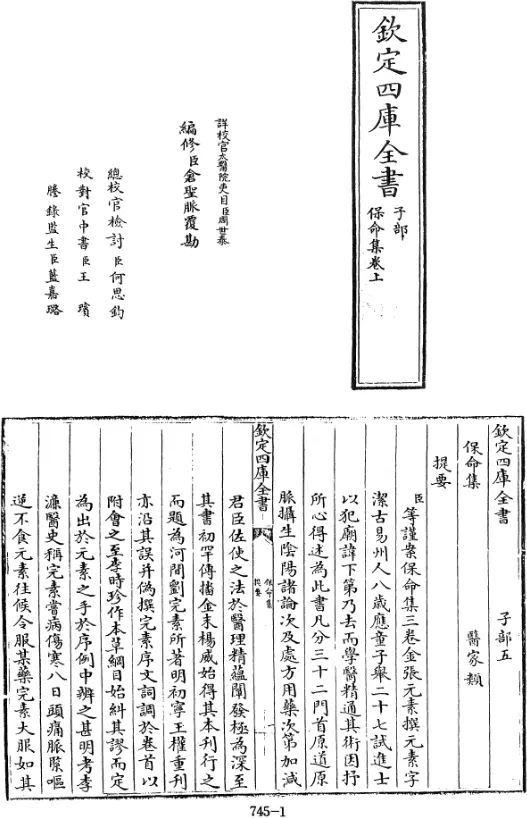 欽定四庫全書
子部
保命集卷上
詳校官太醫院吏目臣周世泰
編修臣倉聖脈覆勘
總校官檢討臣何思鈞
校對官中書臣王瓆
謄錄監生臣藍嘉璐
欽定四庫全書 子部五
保命集 醫家類
提要
臣等謹案保命集三卷金張元素撰元素字
潔古易州人八歲應童子舉二十七試進士
以犯廟諱下第乃去而學醫精通其術因抒
所心得述為此書凡分三十二門首原道原
脈攝生陰陽諸論次及處方用藥次第加減
欽定四庫全書
保命集
提要
君臣佐使之法於醫理精蘊闡發極為深至
其書初罕傳播金末楊威始得其本刊行之
而題為河間劉完素所著明初寧王權重刊
亦沿其誤并偽撰完素序文詞調於卷首以
附會之至李時珍作本草綱目始糾其謬而定
為出於元素之手於序例中辨之甚明考李
濂醫史稱完素嘗病傷寒八日頭痛脈緊嘔
逆不食元素往候令服某藥完素大服如其
745-1